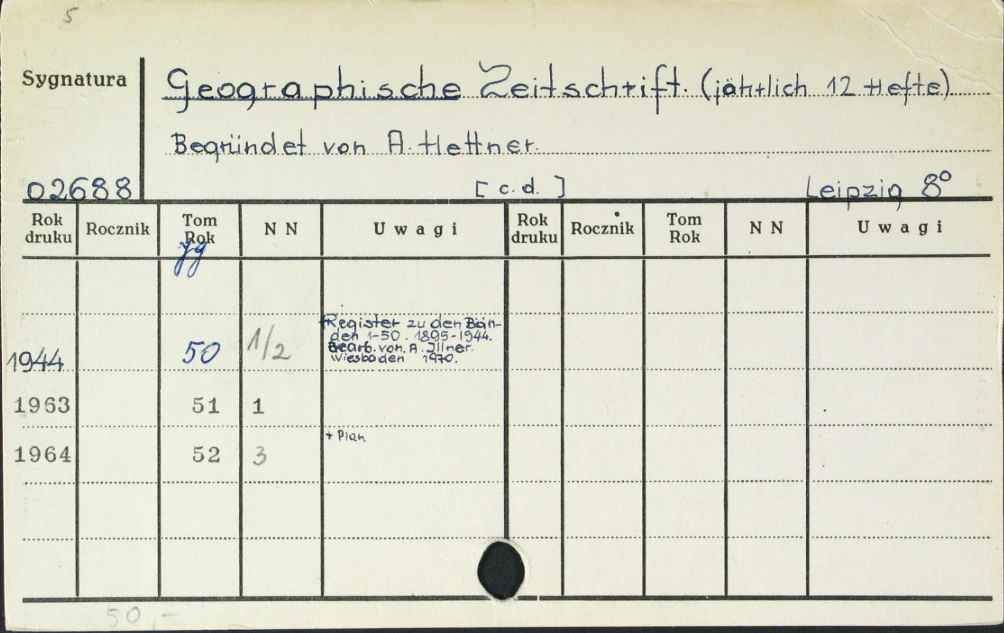 5
Sygnatura
Geographische Zeitschrift. (jährlich 12 Hefte)
Begründet von A. Hettner.
02688 [c.d.] Leipzig 8°
Rok druku Rocznik Tom Rok N N Uwagi Rok druku Rocznik Tom Rok N N Uwagi
Jg
Register zu den Bän-
den 1-50. 1895-1944.
Bearb. von. A. Illner.
Wiesbaden 1970.
1944 50 1/2
1963 51 1
+ Plan
1964 52 3
50,-